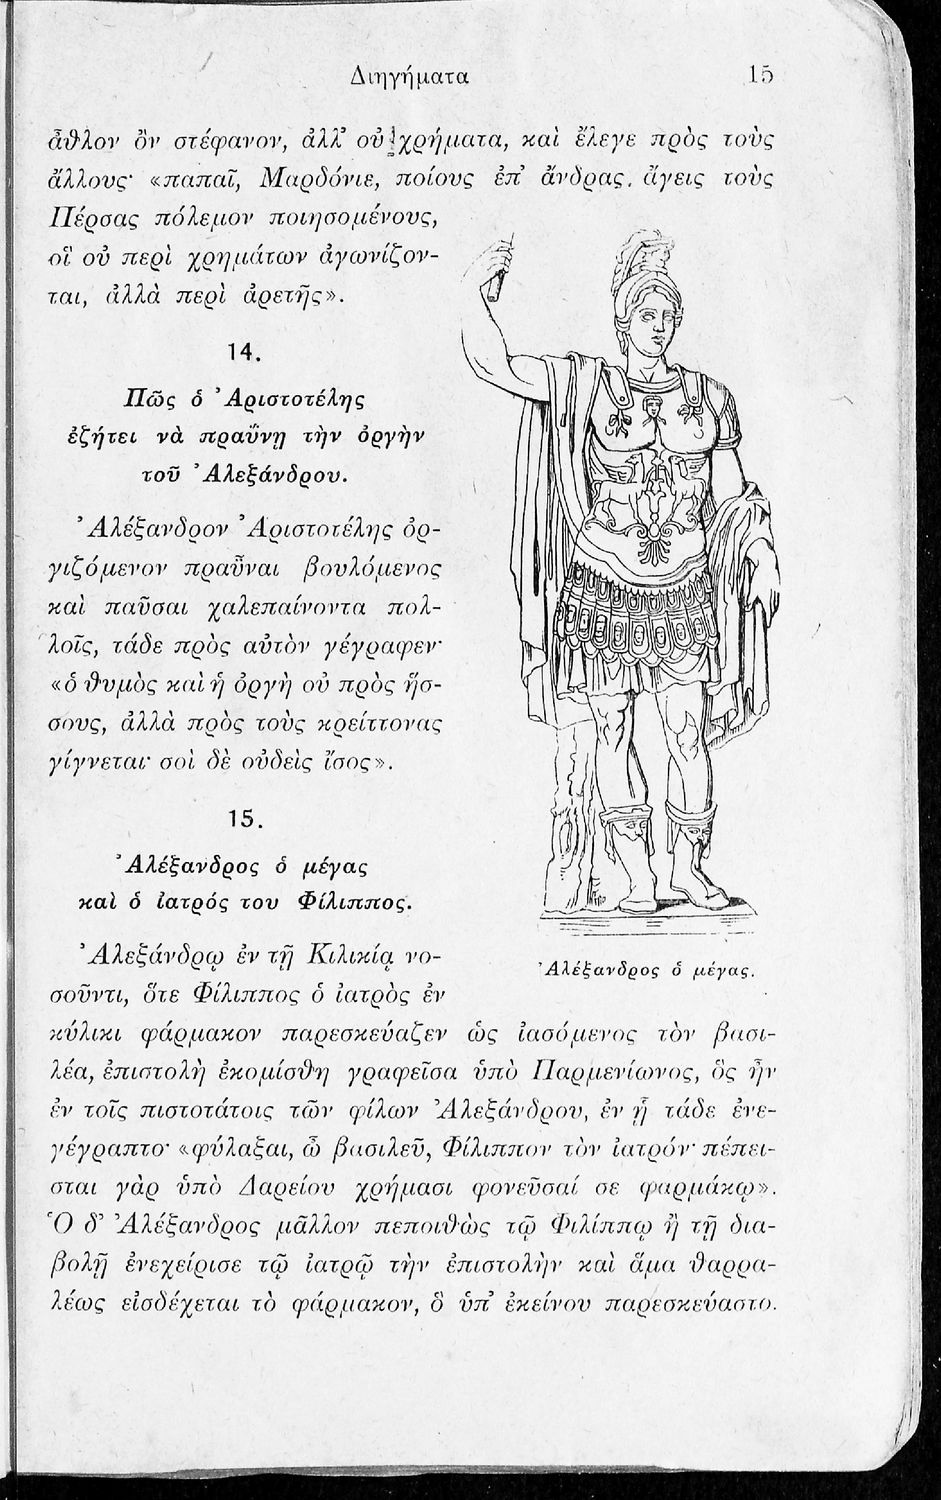 Διηγήματα 15
ἆθλον ὂν στέφανον, ἀλλ’ οὐ χρήματα, καὶ ἔλεγε πρὸς τοὺς
ἄλλους· «παπαῖ, Μαρδόνιε, ποίους ἐπ’ ἄνδρας. ἄγεις τοὺς
Πέρσας πόλεμον ποιησομένους,
οἳ οὐ περὶ χρημάτων ἀγωνίζον-
ται, ἀλλὰ περὶ ἀρετῆς».
14.
Πῶς ὁ Ἀριστοτέλης
ἐζήτει νὰ πραΰνῃ τὴν ὀργὴν
τοῦ Ἀλεξάνδρου.
Ἀλέξανδρον Ἀριστοτέλης ὀρ-
γιζόμενον πραῦναι βουλόμενος
καὶ παῦσαι χαλεπαίνοντα πολ-
λοῖς, τάδε πρὸς αὐτὸν γέγραφεν·
«ὁ θυμὸς καὶ ἡ ὀργὴ οὐ πρὸς ἥσ-
σους, ἀλλὰ πρὸς τοὺς κρείττονας
γίγνεται· σοὶ δὲ οὐδεὶς ἴσος».
15.
Ἀλέξανδρος ὁ μέγας
καὶ ὁ ἰατρός του Φίλιππος.
Ἀλεξάνδρῳ ἐν τῇ Κιλικίᾳ νο-
σοῦντι, ὅτε Φίλιππος ὁ ἰατρὸς ἐν
κύλικι φάρμακον παρεσκεύαζεν ὡς ἰασόμενος τὸν βασι-
λέα, ἐπιστολὴ ἐκομίσθη γραφεῖσα ὑπὸ Παρμενίωνος, ὃς ἦν
ἐν τοῖς πιστοτάτοις τῶν φίλων Ἀλεξάνδρου, ἐν ᾗ τάδε ἐνε-
γέγραπτο· «φύλαξαι, ὦ βασιλεῦ, Φίλιππον τὸν ἰατρόν· πέπει-
σται γὰρ ὑπὸ Δαρείου χρήμασι φονεῦσαί σε φαρμάκῳ».
Ὁ δ’ Ἀλέξανδρος μᾶλλον πεποιθὼς τῷ Φιλίππῳ ἢ τῇ δια-
βολῇ ἐνεχείρισε τῷ ἰατρῷ τὴν ἐπιστολὴν καὶ ἅμα θαρρα-
λέως εἰσδέχεται τὸ φάρμακον, ὃ ὑπ’ ἐκείνου παρεσκεύαστο.
Ἀλέξανδρος ὁ μέγας.